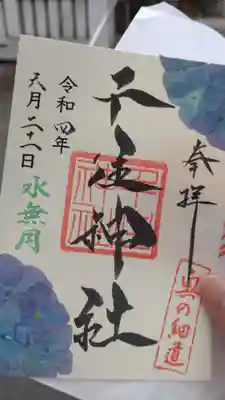 奉拝
奥の細道
千住神社
令和四年
六月二十一日
水無月